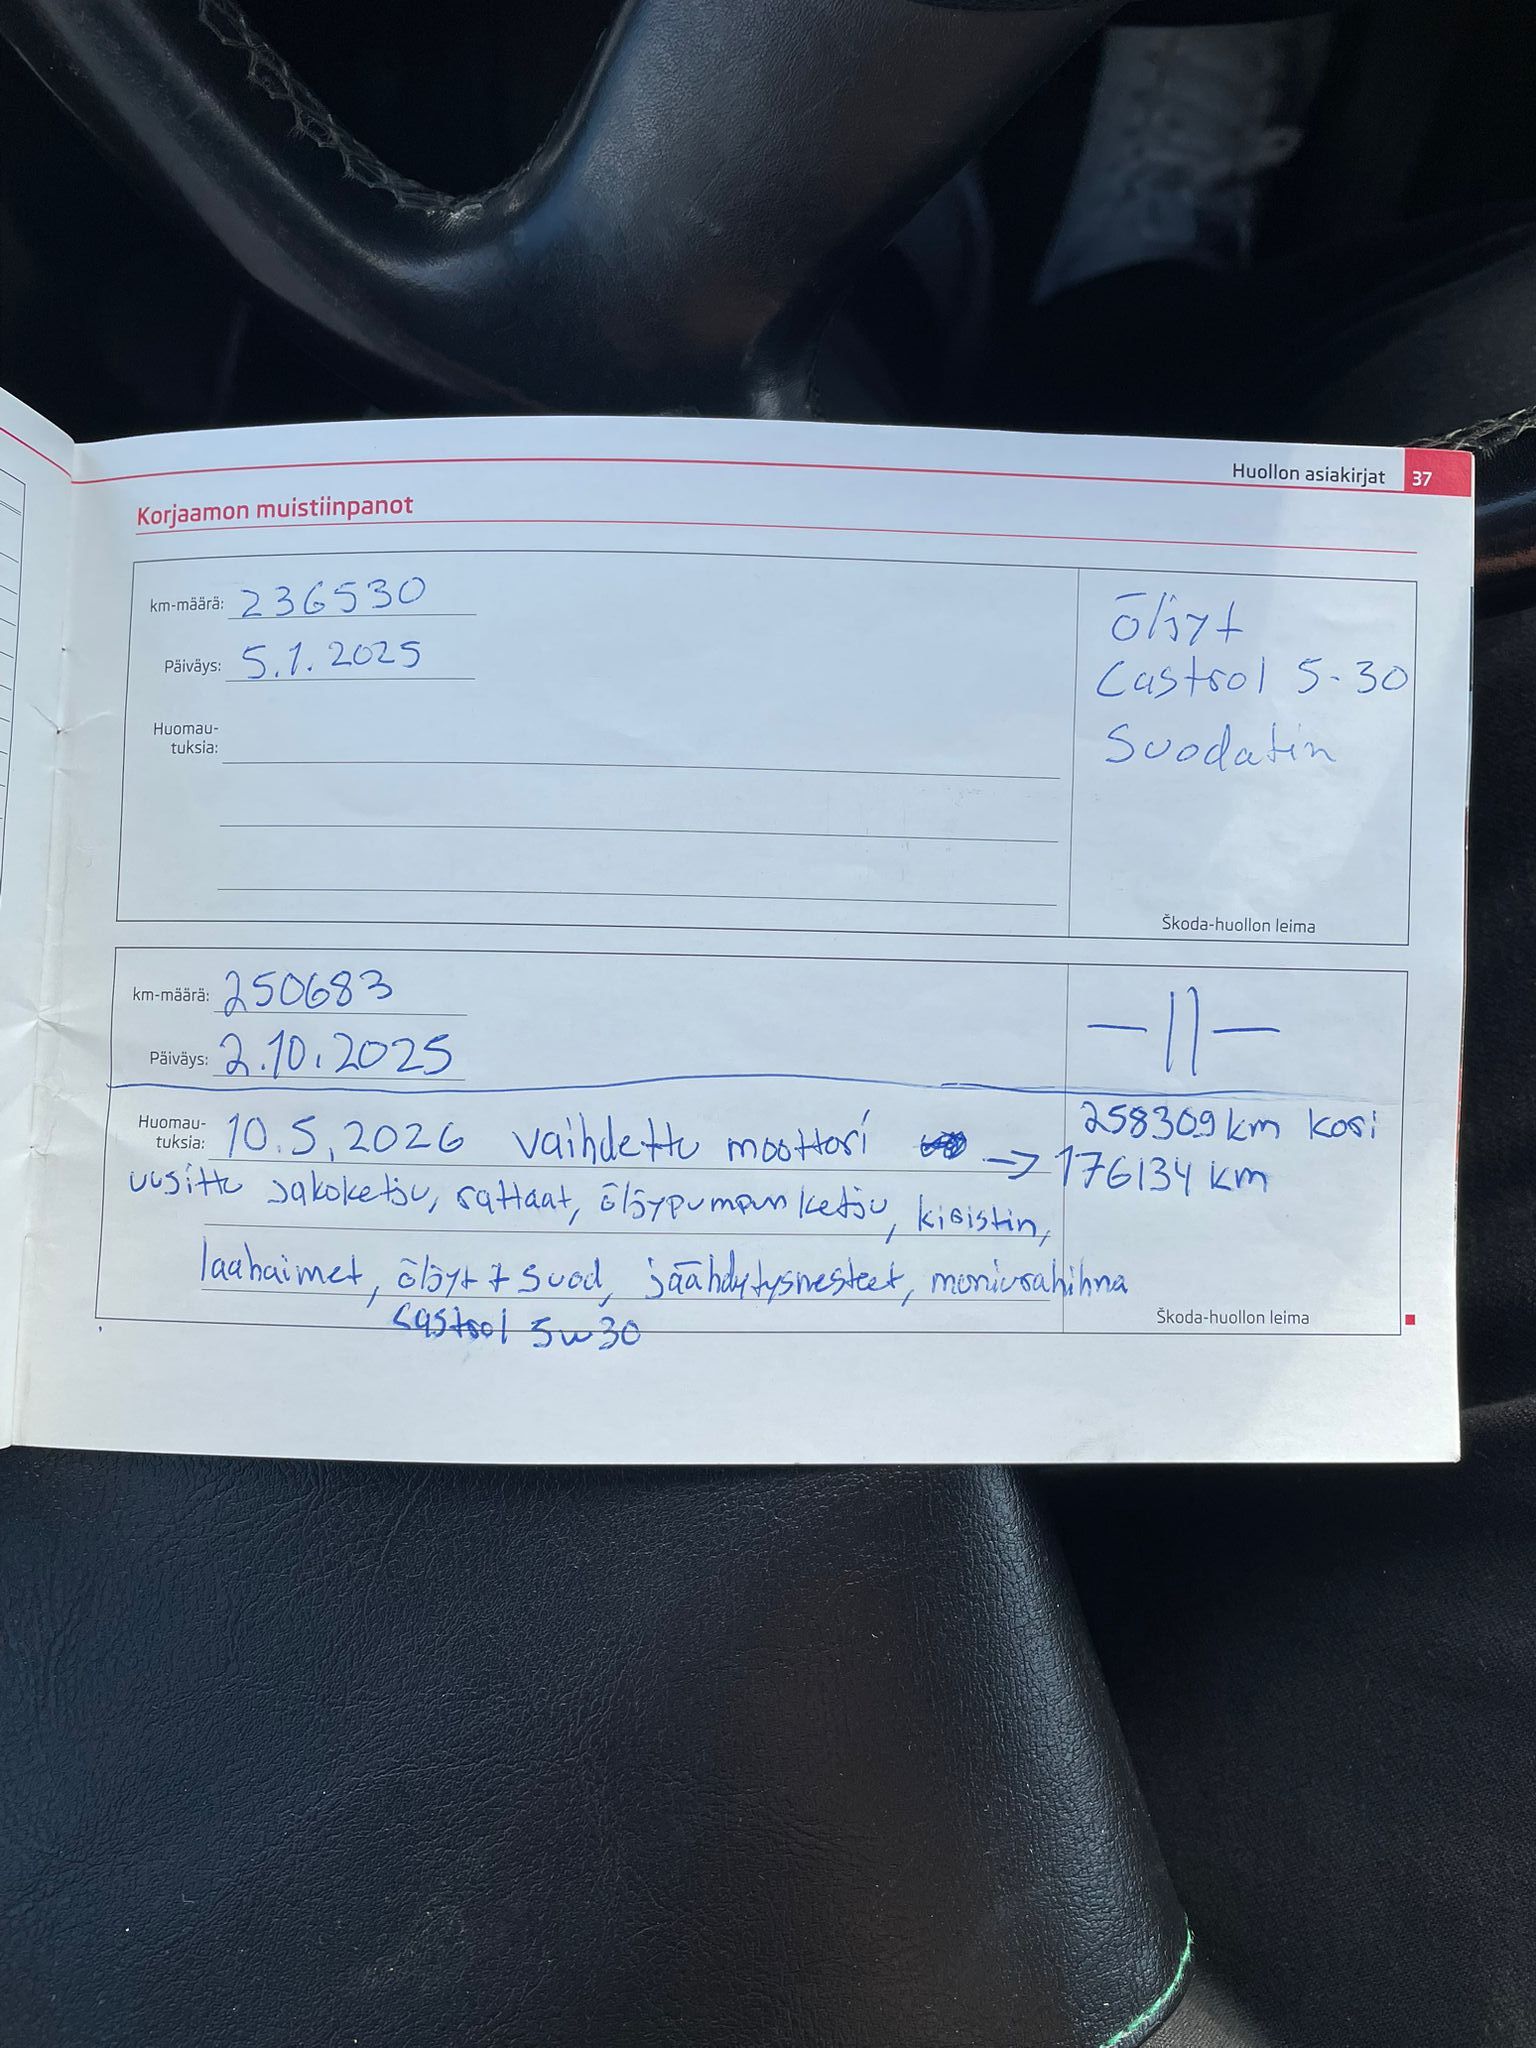 Huollon asiakirjat 37
Korjaamon muistiinpanot
km-määrä: 236530
Päiväys: 5.1.2025
Huomau-
tuksia:
Öljyt
Castrol 5-30
Suodatin
Škoda-huollon leima
km-määrä: 250683
Päiväys: 2.10.2025
—||—
Huomau-
tuksia: 10.5.2026 vaihdettu moottori → 176134 km
258309 km kori
uusittu jakoketju, rattaat, öljypumpun ketju, kiristin,
laahaimet, öljyt + suod, jäähdytysnesteet, moniurahihna
Castrol 5w30
Škoda-huollon leima